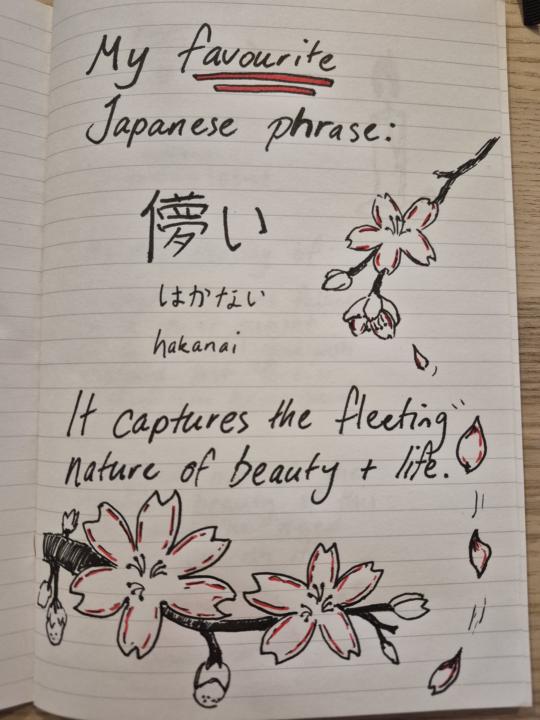 My favourite
Japanese phrase:
儚い
はかない
hakanai
It captures the fleeting
nature of beauty + life.